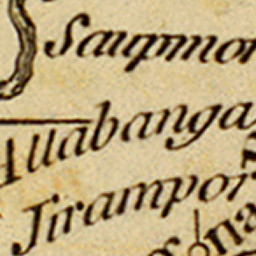 Sauqmor
Allabanga
Jirampor
na